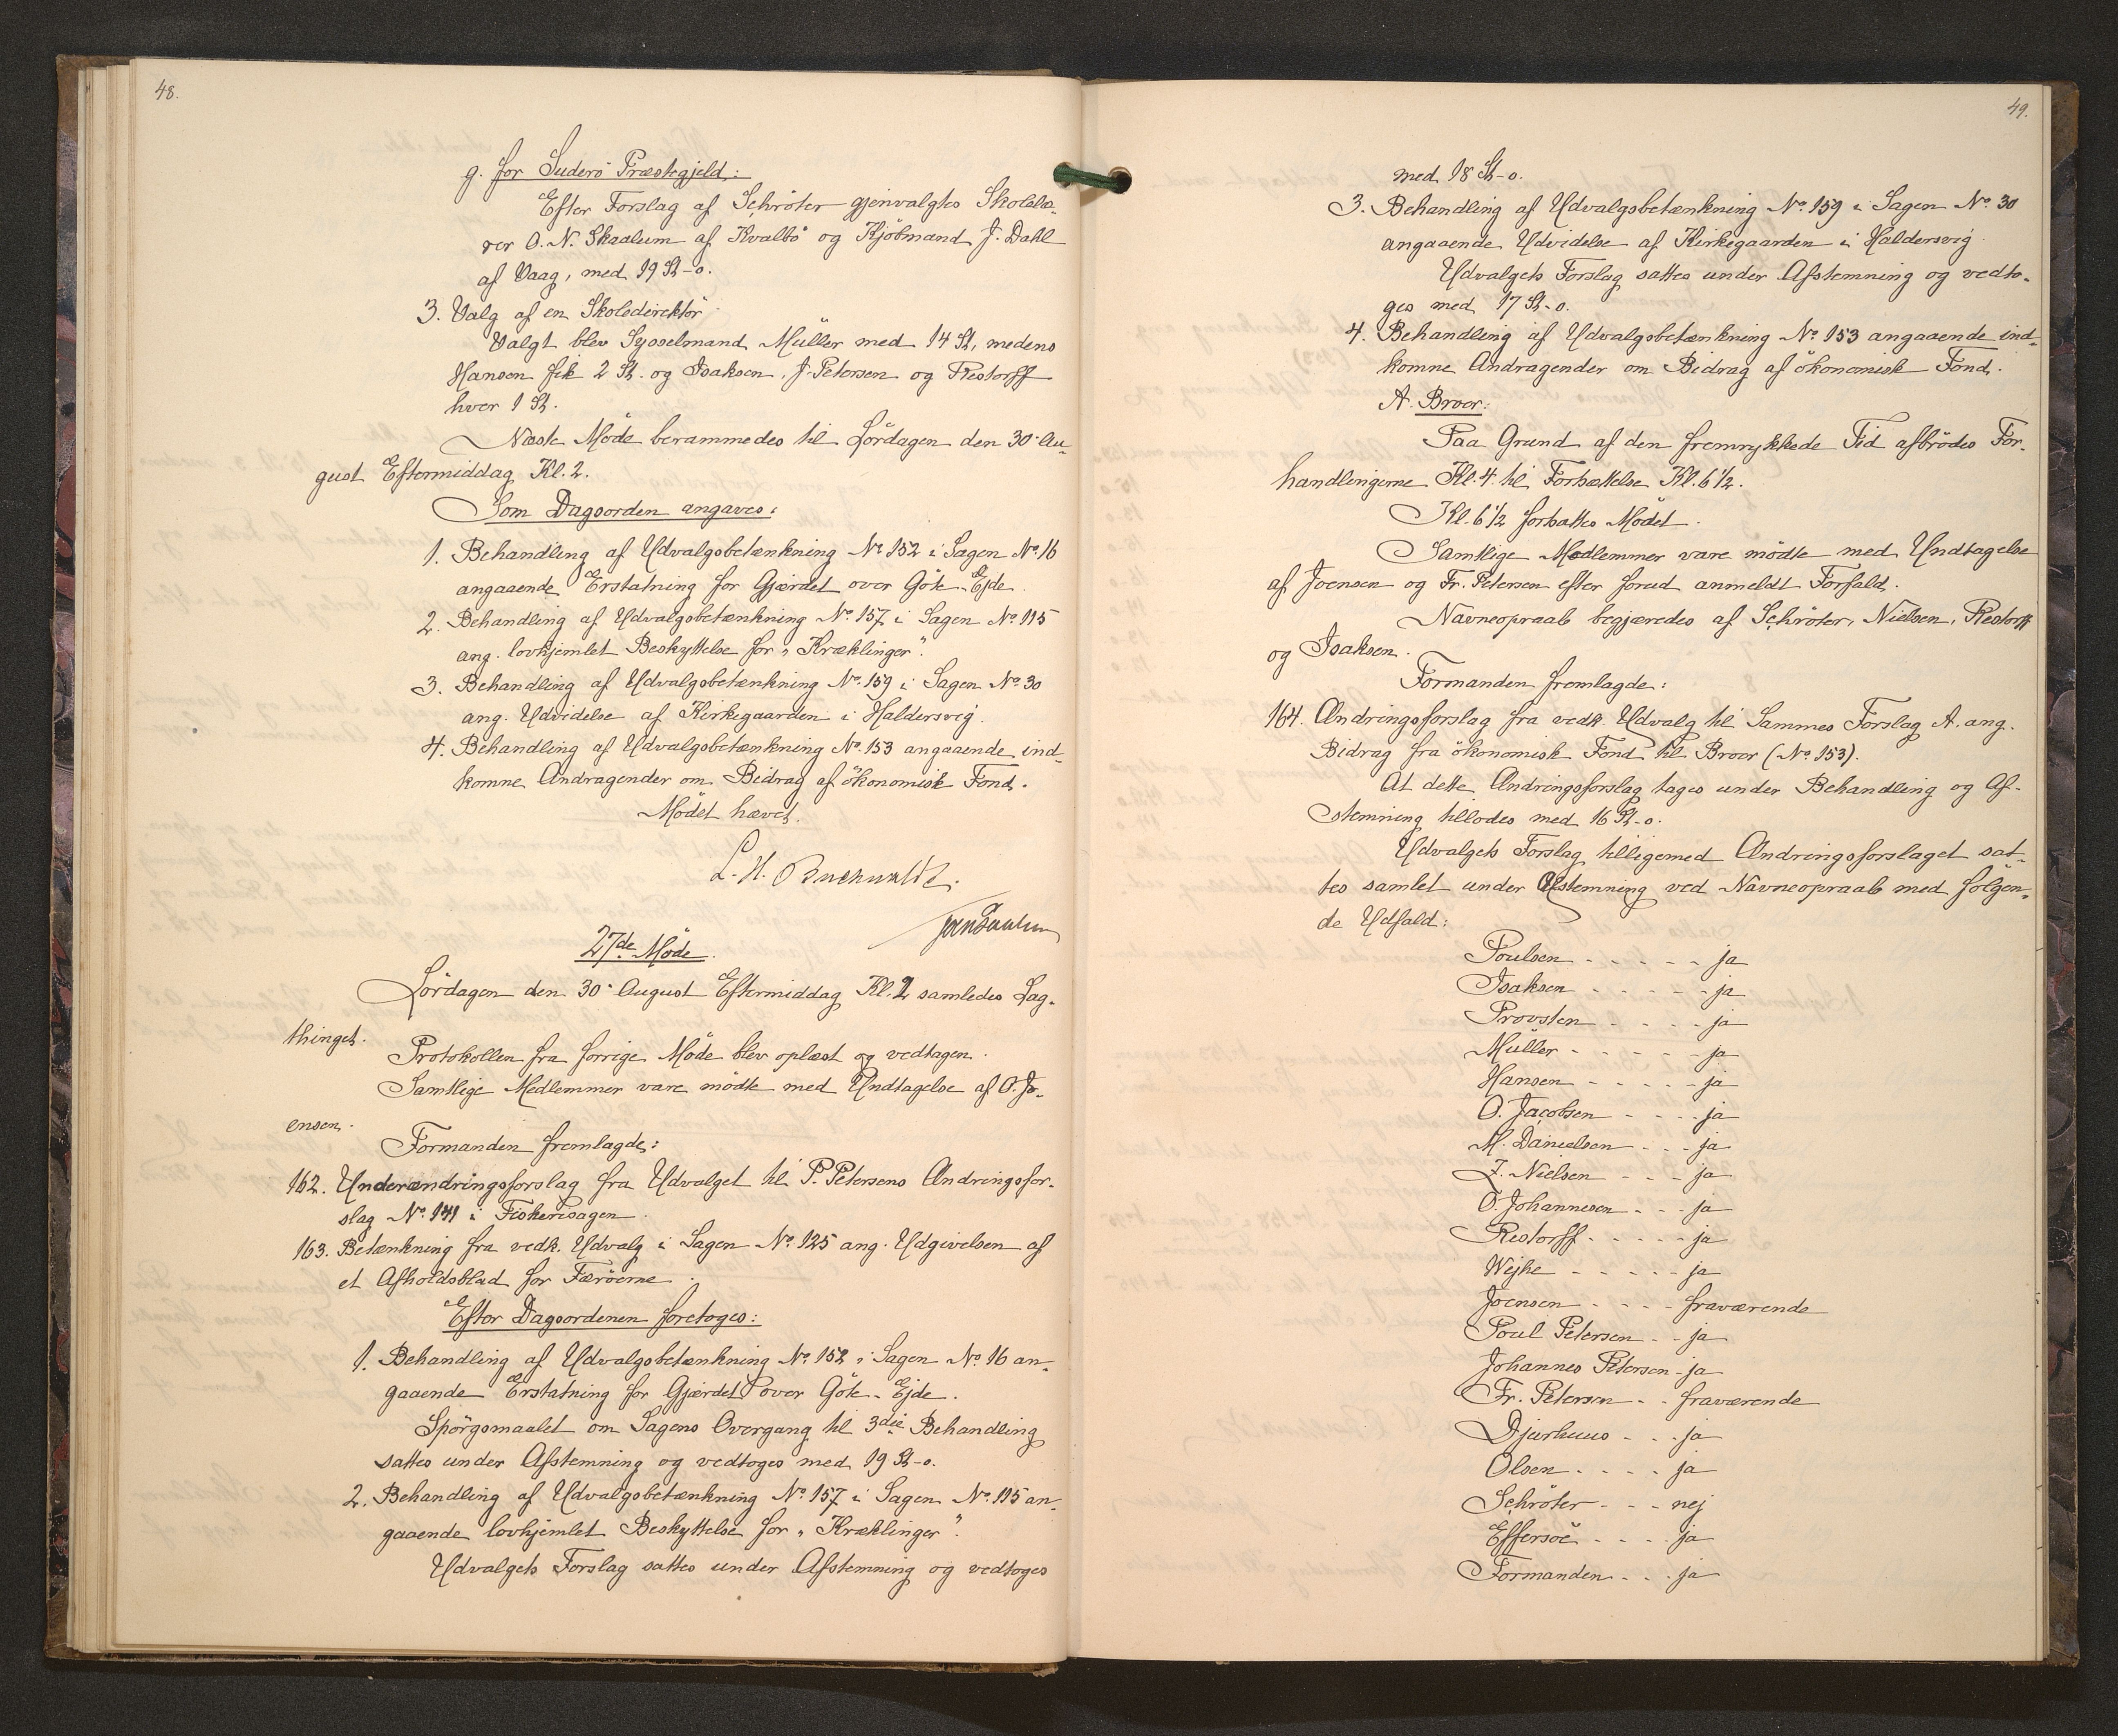 48.
g. for Suderö Præstegjeld:
Efter Forslag af Schröter gjenvalgtes Skolelæ-
rer O. N. Skaalum af Kvalbö og Kjöbmand J. Dahl
af Vaag, med 19 St-0.
3. Valg af en Skoledirektör.
Valgt blev Sysselmand Müller med 14 St, medens
Hansen fik 2 St. og Isaksen, J. Petersen og Restorff
hver 1 St.
Næste Möde berammedes til Lördagen den 30. Au-
gust Eftermiddag Kl. 2.
Som Dagsorden angaves:
1. Behandling af Udvalgsbetænkning No. 152 i Sagen No. 16
angaaende Erstatning for Gjærdet over Göte-Ejde.
2. Behandling af Udvalgsbetænkning No. 157 i Sagen No. 115
ang. lovhjemlet Beskyttelse for „Kræklinger".
3. Behandling af Udvalgsbetænkning No. 159 i Sagen No. 30
ang. Udvidelse af Kirkegaarden i Haldersvig.
4. Behandling af Udvalgsbetænkning No. 153 angaaende ind-
komne Andragender om Bidrag af ökonomisk Fond.
Mödet hævet.
L. H. Buchwaldt.
27de Möde.
Lördagen den 30. August Eftermiddag Kl. 2 samledes Lag-
thinget.
Protokollen fra forrige Möde blev oplæst og vedtagen.
Samtlige Medlemmer vare mödte med Undtagelse af O. Jo-
ensen.
Formanden fremlagde:
162. Underændringsforslag fra Udvalget til P. Petersens Ændringsfor-
slag No. 141 i Fiskerisagen.
163. Betænkning fra vedk. Udvalg i Sagen No. 125 ang. Udgivelsen af
et Afholdsblad for Færöerne.
Efter Dagsordenen foretoges:
1. Behandling af Udvalgsbetænkning No. 152 i Sagen No. 16 an-
gaaende Erstatning for Gjærdet over Göte-Ejde.
Spörgsmaalet om Sagens Overgang til 3die Behandling
sattes under Afstemning og vedtoges med 19 St-0.
2. Behandling af Udvalgsbetænkning No. 157 i Sagen No. 115 an-
gaaende lovhjemlet Beskyttelse for „Kræklinger".
Udvalgets Forslag sattes under Afstemning og vedtoges
49.
med 18 St-0.
3. Behandling af Udvalgsbetænkning No. 159 i Sagen No. 30
angaaende Udvidelse af Kirkegaarden i Haldersvig.
Udvalgets Forslag sattes under Afstemning og vedto-
ges med 17 St-0.
4. Behandling af Udvalgsbetænkning No. 153 angaaende ind-
komne Andragender om Bidrag af ökonomisk Fond.
A. Broer:
Paa Grund af den fremrykkede Tid afbrödes For-
handlingerne Kl. 4 til Fortsættelse Kl. 6 1/2.
Kl. 6 1/2 fortsattes Mödet.
Samtlige Medlemmer vare mödte med Undtagelse
af Joensen og Fr. Petersen efter forud anmeldt Forfald.
Navneopraab begjæredes af Schröter, Nielsen, Restorff
og Isaksen.
Formanden fremlagde:
164. Ændringsforslag fra vedk. Udvalg til Sammes Forslag A. ang.
Bidrag fra ökonomisk Fond til Broer (No. 153).
At dette Ændringsforslag tages under Behandling og Af-
stemning tillodes med 16 St-0.
Udvalgets Forslag tilligemed Ændringsforslaget sat-
tes samlet under Afstemning ved Navneopraab med fölgen-
de Udfald:
Poulsen - - - - - ja
Isaksen - - - - - ja
Provsten - - - - ja
Müller - - - - - ja
Hansen - - - - - ja
O. Jacobsen - - - - ja
M. Danielsen - - - ja
Z. Nielsen - - - ja
O. Johannesen - - - ja
Restorff - - - - - ja
Wejhe - - - - - ja
Joensen - - - - fraværende
Poul Petersen - - ja
Johannes Petersen - ja
Fr. Petersen - - fraværende
Djurhuus - - - ja
Olsen - - - - ja
Schröter - - - nej
Effersöe - - - - ja
Formanden - - - ja